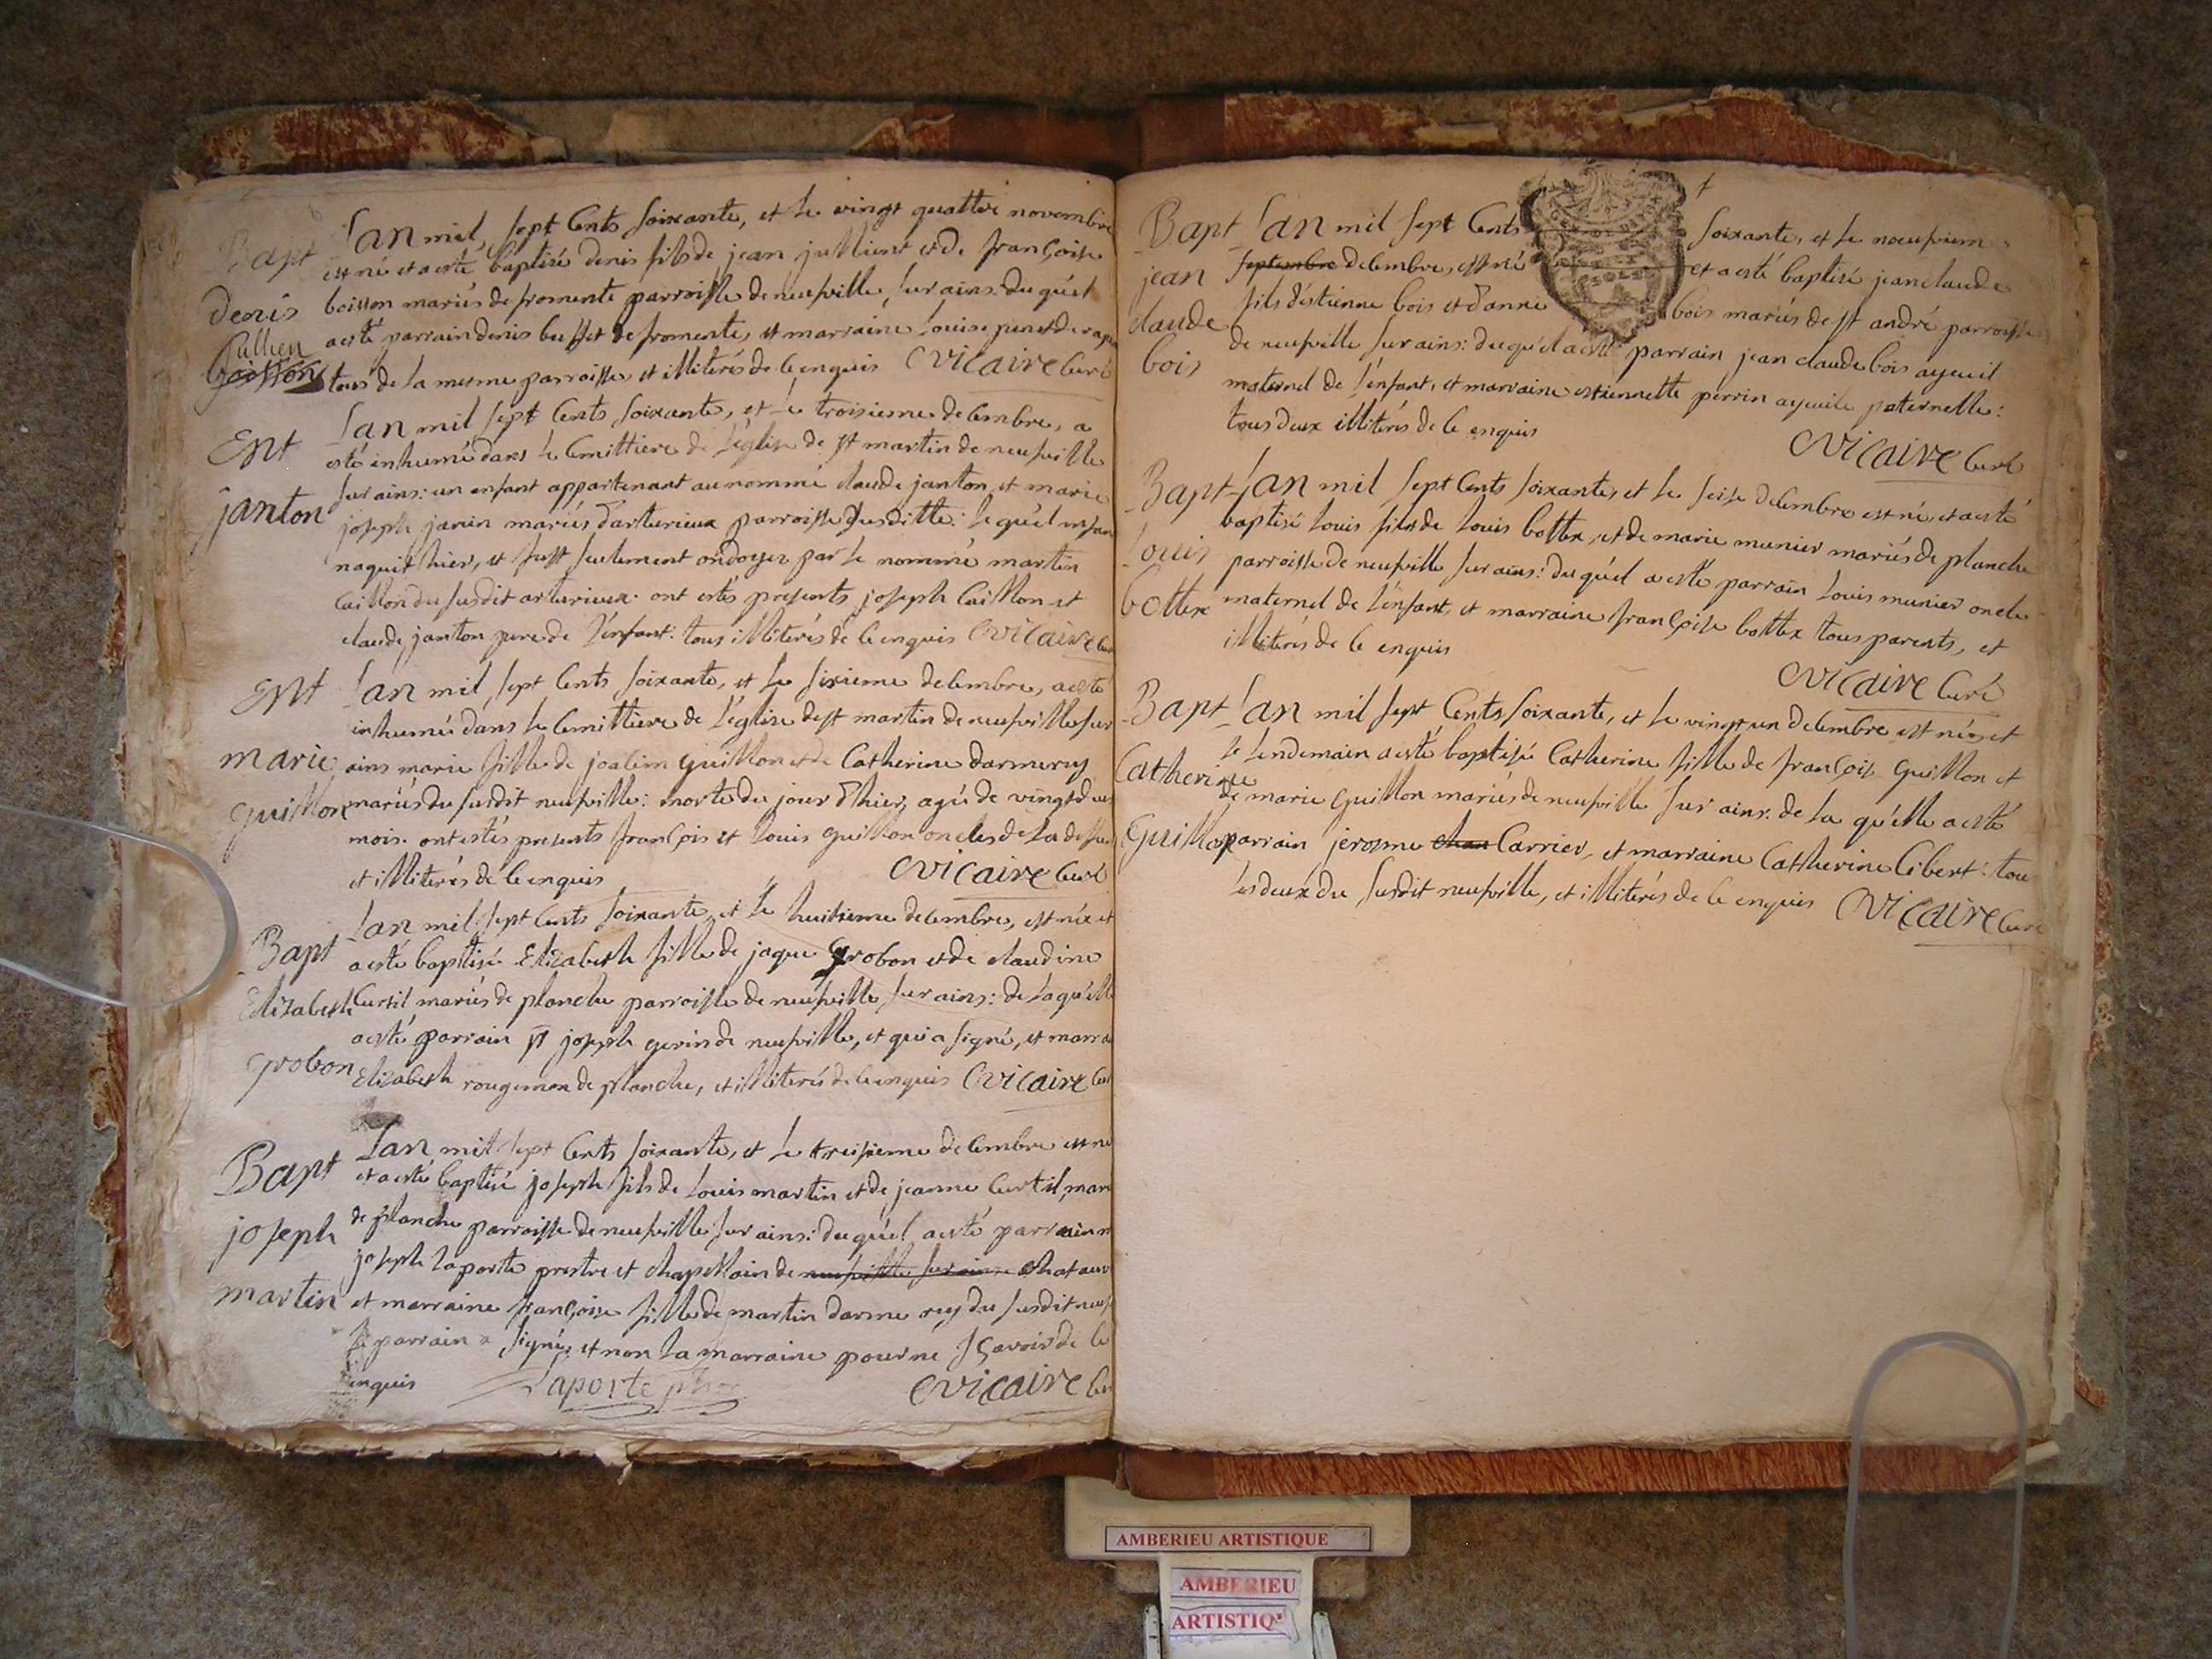 Bapt
denis
Jullien
boisson
Lan mil sept Cents soixante, et le vingt quattre novembre
est né et a esté baptisé denis fils de jean jullient et de françoise
boisson mariés de fromente parroisse de neufville sur ains: du qu'el
a esté parrain denis buffet de fromente, et marraine Louise penet de
tous de la mesme parroisse, et illiterés de ce enquis CVicaire Curé
Ent
janton
Lan mil sept Cents soixante, et le troisieme decembre, a
esté inhumé dans le Cemittiere de l'église de st martin de neufville
sur ains: un enfant appartenant au nommé claude janton, et marie
joseph janin mariés d'arturieux parroisse susditte: le qu'el enfan
naquit hier, et fust seulement ondoyez par le nommé martin
Caillon du susdit arturieux. ont estés presents joseph Caillon et
claude janton pere de l'enfant: tous illiterés de ce enquis CVicaire Cur
Ent
marie
guillon
Lan mil sept Cents soixante, et le sixieme decembre, a esté
inhumé dans le Cemittiere de l'église de st martin de neufville sur
ains marie fille de joacim guillon et de Catherine darmerey
mariés du susdit neufville: morte du jour d'hier, agée de vingt deux
mois. ont estés presents françois et Louis guillon oncles de la deffun
et illiterés de ce enquis CVicaire Curé
Bapt
Elizabeth
grobon
Lan mil sept Cents soixante, et le huitieme decembre, est née et
a esté baptisé Elizabeth fille de jaque grobon et de claudine
Curtil mariés de planche parroisse de neufville sur ains: de la qu'elle
a esté parrain st joseph gerin de neufville, et qui a signé, et marra
Elizabeth rougemon de planche, et illiterés de ce enquis CVicaire Cur
Bapt
joseph
martin
Lan mil sept Cents soixante, et le treisieme decembre est né
et a esté baptisé joseph fils de Louis martin et de jeanne Curtil, mari
de planche parroisse de neufville sur ains: du qu'el a esté parrain
joseph Laporte prestre et chapellain de neufville sur ains
et marraine françoise fille de martin darmerey du susdit neuf
le parrain a signé, et non la marraine pour ne sçavoir de ce
enquis Laporte ptre CVicaire Cur
Bapt
jean
claude
bois
Lan mil sept Cents soixante, et le noeufviem
septembre decembre, est né et a esté baptisé jean claude
fils d'estienne bois et d'anne bois mariés de st andré parroisse
de neufville sur ains: du qu'el a esté parrain jean claude bois ayeuil
maternel de l'enfant, et marraine estiennette perrin ayeuile paternelle:
tous deux illiterés de ce enquis
CVicaire Curé
Bapt
Louis
bottex
Lan mil sept Cents soixante, et le seise decembre est né, et a esté
baptisé Louis fils de Louis bottex, et de marie munier mariés de planche
parroisse de neufville sur ains: du qu'el a esté parrain Louis munier oncle
maternel de l'enfant, et marraine françoise bottex tous parents, et
illiterés de ce enquis
CVicaire Curé
Bapt
Catherine
guillon
Lan mil sept Cents soixante, et le vingt un decembre est née, et
le lendemain a esté baptisé Catherine fille de françois guillon et
de marie guillon mariés de neufville sur ains: de la qu'elle a esté
parrain jerosme Carrier, et marraine Catherine Cibert: tou
les deux du susdit neufville, et illiterés de ce enquis CVicaire Curé
AMBERIEU ARTISTIQUE
AMBERIEU
ARTISTIQ